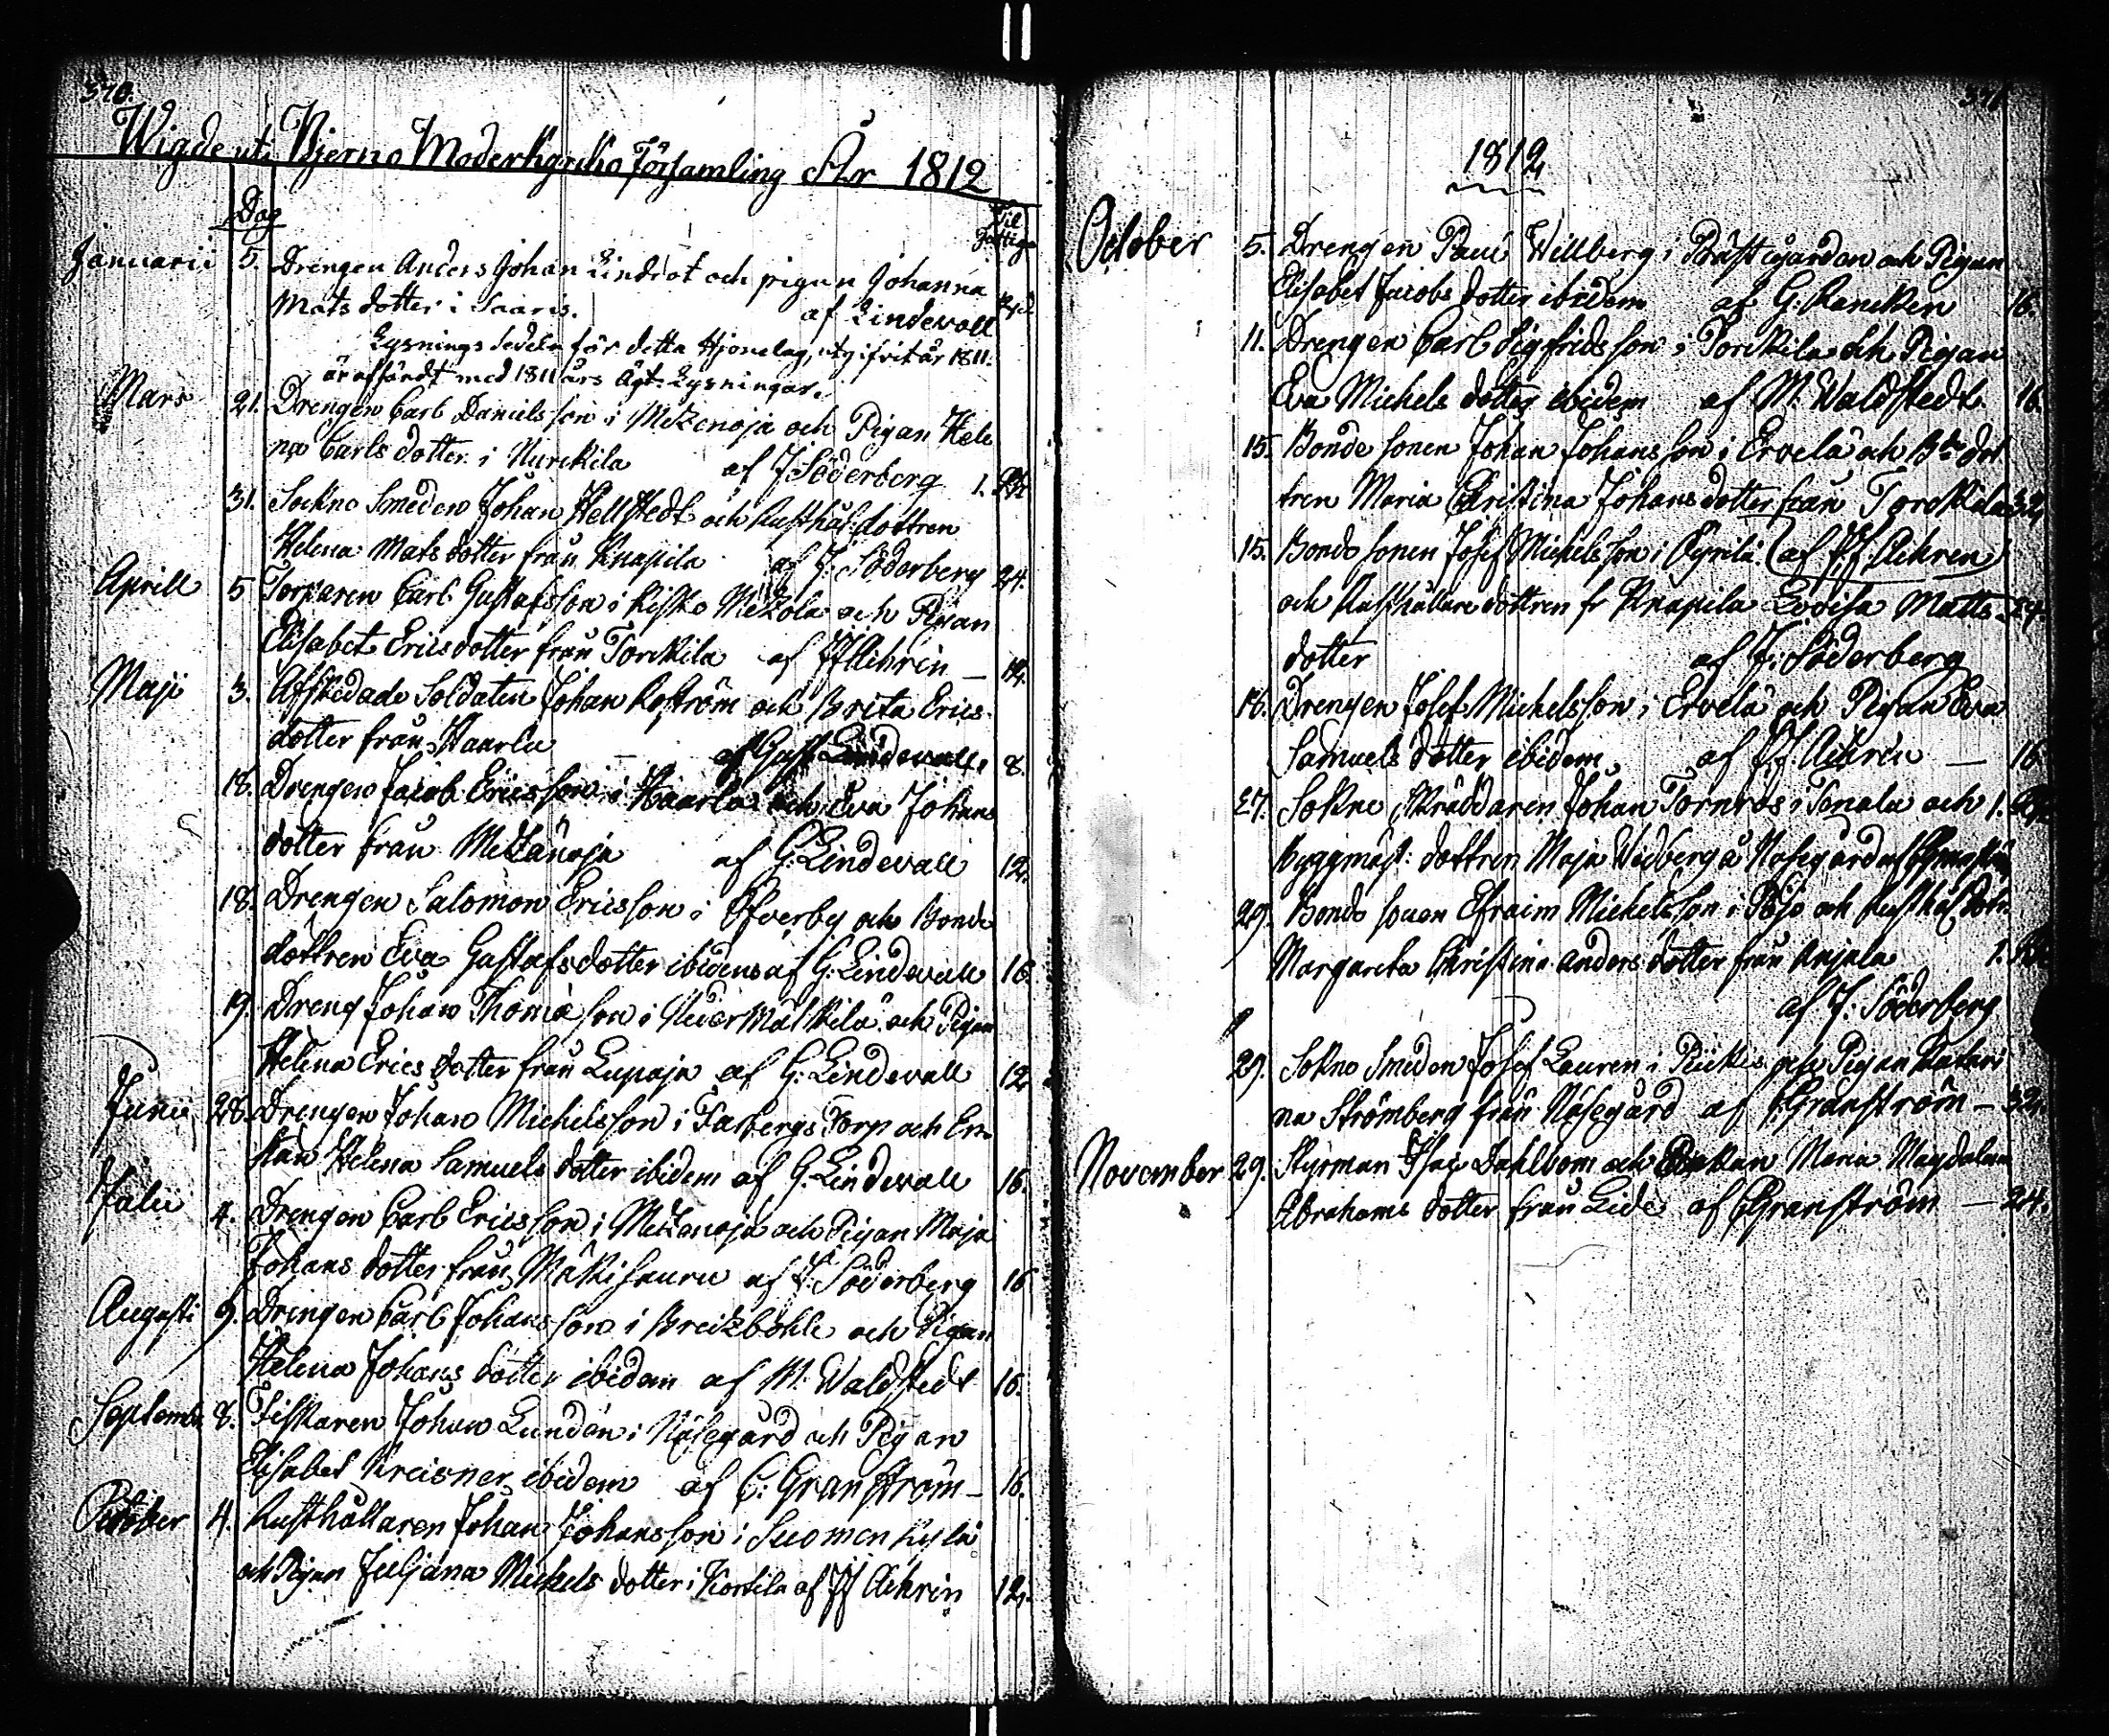 370.
Wigde uti Bjerno Moderkyrko Församling År 1812
Dag
Til Fattiga
Januarii 5. Drengen Anders Johan Lindrot och pigan Johanna
Mats dotter i Saaris. af Lindevall
Lysnings Sedeln för detta Hjonelag, utgifvit år 1811.
är affärdt med 1811 års Ägt. Lysningar.
Mars 21. Drengen Carl Daniels son i Metzenoja och Pigan Hele
na Carls dotter i Nurckila af J Söderberg 1.
31. Sockne Smeden Johan Hellstedt och Rusthål: dottren
Helena Mats dotter från Knapila af J: Söderberg 24.
Aprill 5 Torparen Carl Gustafsson i Kisko Metzola och Pigan
Elisabet Erics dotter från Torckila af Aihrin
Maji 3. Afskedade Soldaten Johan Roström och Brita Erics
dotter från Haarla af Gust. Lindevall. 8.
18. Drengen Jacob Ericsson i Haarla och Eva Johans
dotter från Metzänoja af G: Lindevall 12.
18. Drengen Salomon Ericsson i Öfverby och Bonde
dottren Eva Gustafs dotter ibidem af G: Lindevall 16.
19. Dreng Johan Thomæ son i Mälkilä och Pigan
Helena Erics dotter från Lupaja af G: Lindevall 12
Junii 28. Drengen Johan Michelsson i Farbergs Torp och En
kan Helena Samuels dotter ibidem af G. Lindevall 16.
Julii 4. Drengen Carl Ericsson i Metzenoja och Pigan Maja
Johans dotter från Mäkisauru af J. Söderberg 16
Augusti 9. Drengen Carl Johansson i Breidböhle och Pigan
Helena Johans dotter ibidem af M: Waldstedt 16.
Septemb. 8. Fiskaren Johan Lunden i Näsegård och Pigan
Elisabet Kreisner ibidem af C: Granström 16.
October 4. Rusthållaren Johan Johansson i Suomenkylä
och Pigan Juljana Michels dotter i Kockila af Aihrin 12.
371
1812
October 5. Drengen Paul Willberg i Prästegården och Pigan
Elisabet Jacobs dotter ibidem af G: Rancken 16.
11. Drengen Carl Sigfrids son i Torckila och Pigan
Eva Michels dotter ibidem af M. Waldstedt 16.
15. Bonde sonen Johan Johansson i Ervelä och B:de dot
tren Maria Christina Johans dotter från Torckila 32
15. Bonde sonen Josef Michelsson i Kyrilä (af Aihren)
och Rusthållare dottren fr Knapila Lovisa Matts 24.
dotter af J: Söderberg
16. Drengen Josef Michelsson i Ervelä och Pigan Eva
Samuels dotter ibidem af Aihren 16
27. Sokne Skräddaren Johan Tornros i Tenala och 1.
Byggmäst: dottren Maja Widberg å Näsegård af Granström
29. Bonde sonen Efraim Michelsson i Pöjo och Rusthål. dotr
Margareta Christina Anders dotter från Anjala 1.
af J: Söderberg
29. Sokne Smeden Josef Lauren i Piikis och Pigan Kathari
na Strömberg från Näsegård af C: Granström 32.
November 29. Styrman Isac Dahlbom och Enkan Maria Magdalena
Abrahams dotter från Lide af C Granström 24.